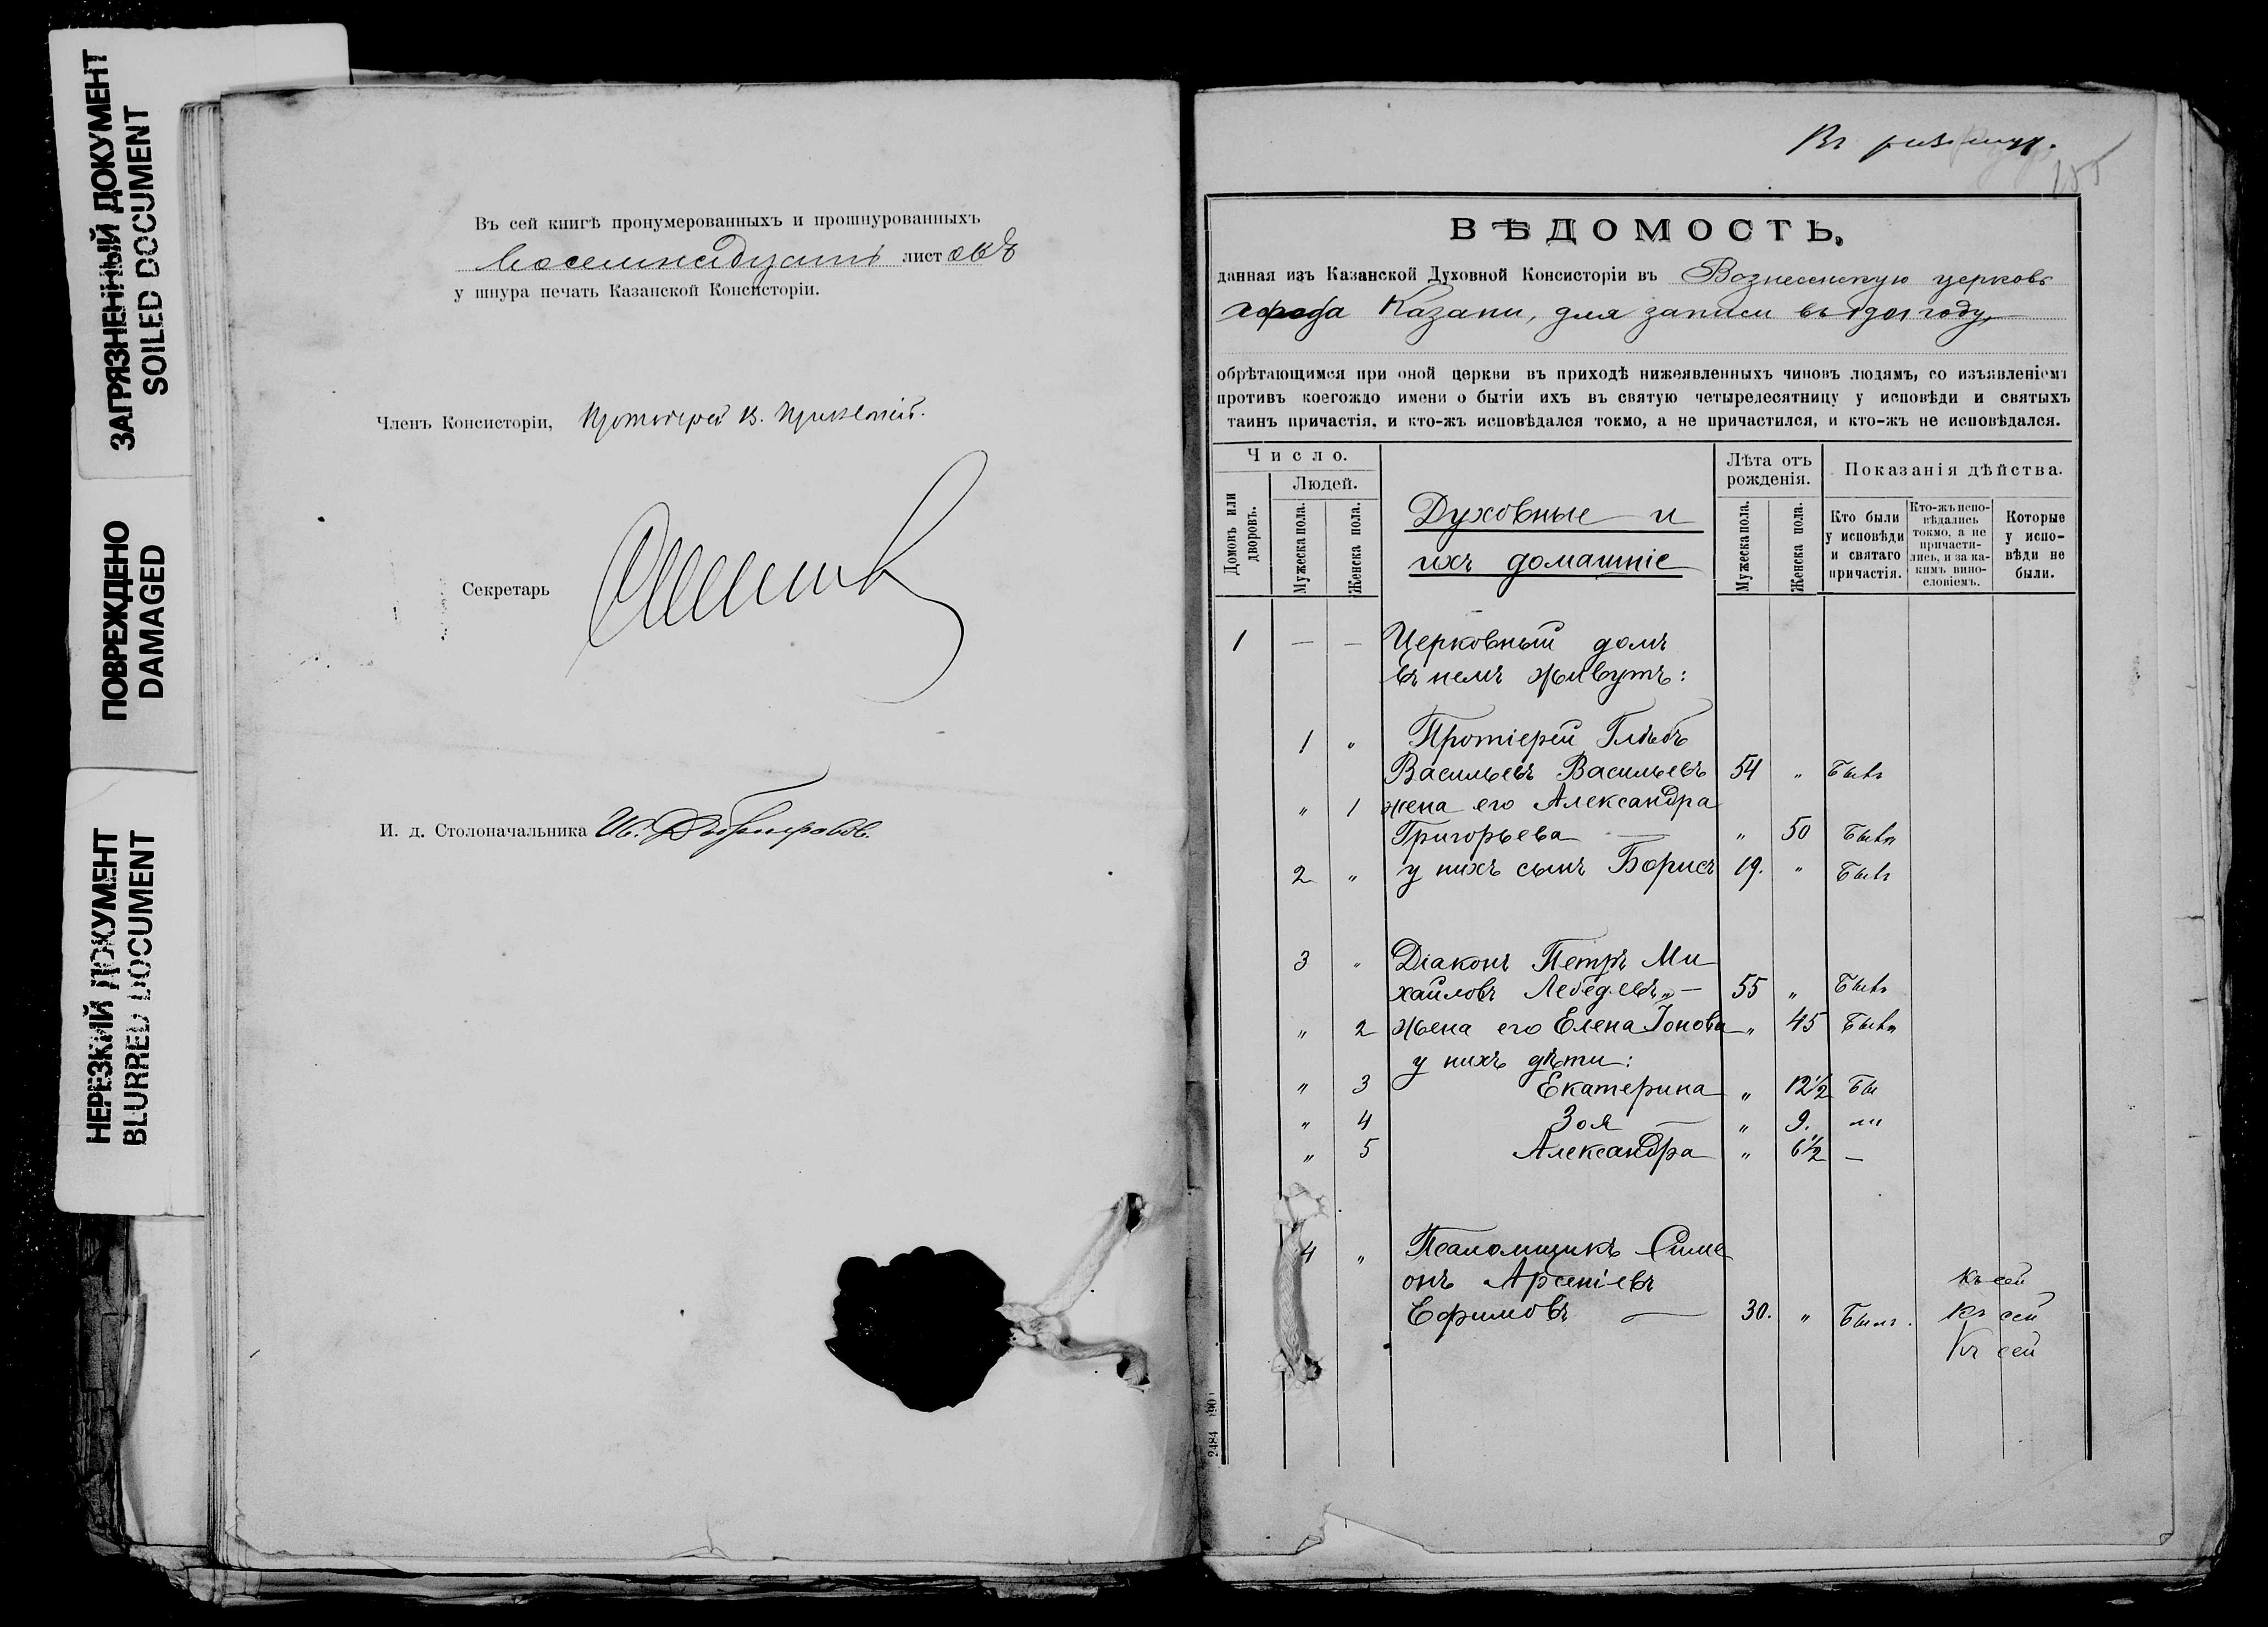 ЗАГРЯЗНЕННЫЙ ДОКУМЕНТ
SOILED DOCUMENT
ПОВРЕЖДЕНО
DAMAGED
НЕРЕЗКИЙ ДОКУМЕНТ
BLURRED DOCUMENT
Въ сей книгѣ пронумерованныхъ и прошнурованныхъ
восемнадцать листовъ
у шнура печать Казанской Консисторіи.
Членъ Консисторіи, Протоіерей
Секретарь
И. д. Столоначальника Ив.
155
ВѢДОМОСТЬ,
данная изъ Казанской Духовной Консисторіи въ Вознесенскую церковь
города Казани, для записи въ 1901 году,
обрѣтающимся при оной церкви въ приходѣ нижеявленныхъ чиновъ людямъ, со изъявленіемъ
противъ коегождо имени о бытіи ихъ въ святую четыредесятницу у исповѣди и святыхъ
таинъ причастія, и кто-жъ исповѣдался токмо, а не причастился, и кто-жъ не исповѣдался.
Число.
Людей.
Домовъ или дворовъ.
Мужеска пола.
Женска пола.
Духовные и
ихъ домашніе
Лѣта отъ рожденія.
Мужеска пола.
Женска пола.
Показанія дѣйства.
Кто были у исповѣди и святаго причастія.
Кто-жъ исповѣдались токмо, а не причастились, и за какимъ винословіемъ.
Которые у исповѣди не были.
1 — — Церковный домъ
въ немъ живутъ:
1 " Протіерей Глѣбъ
Васильевъ Васильевъ 54 " Бывъ
" 1 жена его Александра
Григорьева — " 50 Быв
2 " у нихъ сынъ Борисъ 19. " Бывъ
3 " Діаконъ Петръ Ми
хайловъ Лебедевъ „ — 55 " Бывъ
" 2 жена его Елена Іонова " 45 Быв
у нихъ дѣти:
" 3 Екатерина " 12½ Бы
" 4 Зоя — " 9. ли
" 5 Александра " 6½ —
4 " Псаломщикъ Симе
онъ Арсеніевъ Къ сей
Ефимовъ — 30. " Былъ. Къ сей
Къ сей
2484 1901